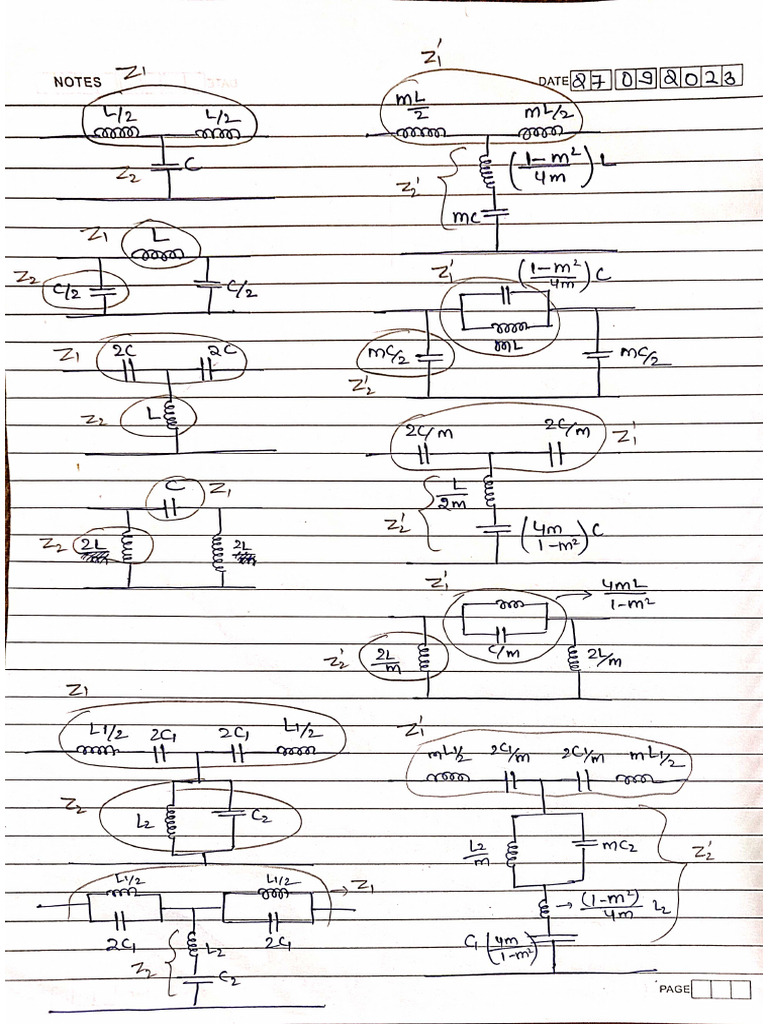 NOTES
DATE 27 09 2023
Z1
L/2 L/2
Z2 C
Z1'
mL/2 mL/2
Z2' (1-m²/4m) L
mC
Z1 L
Z2 C/2 C/2
Z1' (1-m²/4m) C
mL
mC/2 mC/2
Z2'
Z1 2C 2C
Z2 L
2C/m 2C/m Z1'
Z2' L/2m
(4m/1-m²) C
C Z1
Z2 2L 2L
Z1' → 4mL/1-m²
C/m
Z2' 2L/m 2L/m
Z1
L1/2 2C1 2C1 L1/2
Z2 L2 C2
Z1'
mL1/2 2C1/m 2C1/m mL1/2
L2/m mC2 Z2'
→ (1-m²)/4m L2
C1 (4m/1-m²)
L1/2 L1/2 → Z1
2C1 2C1
Z2 L2
C2
PAGE